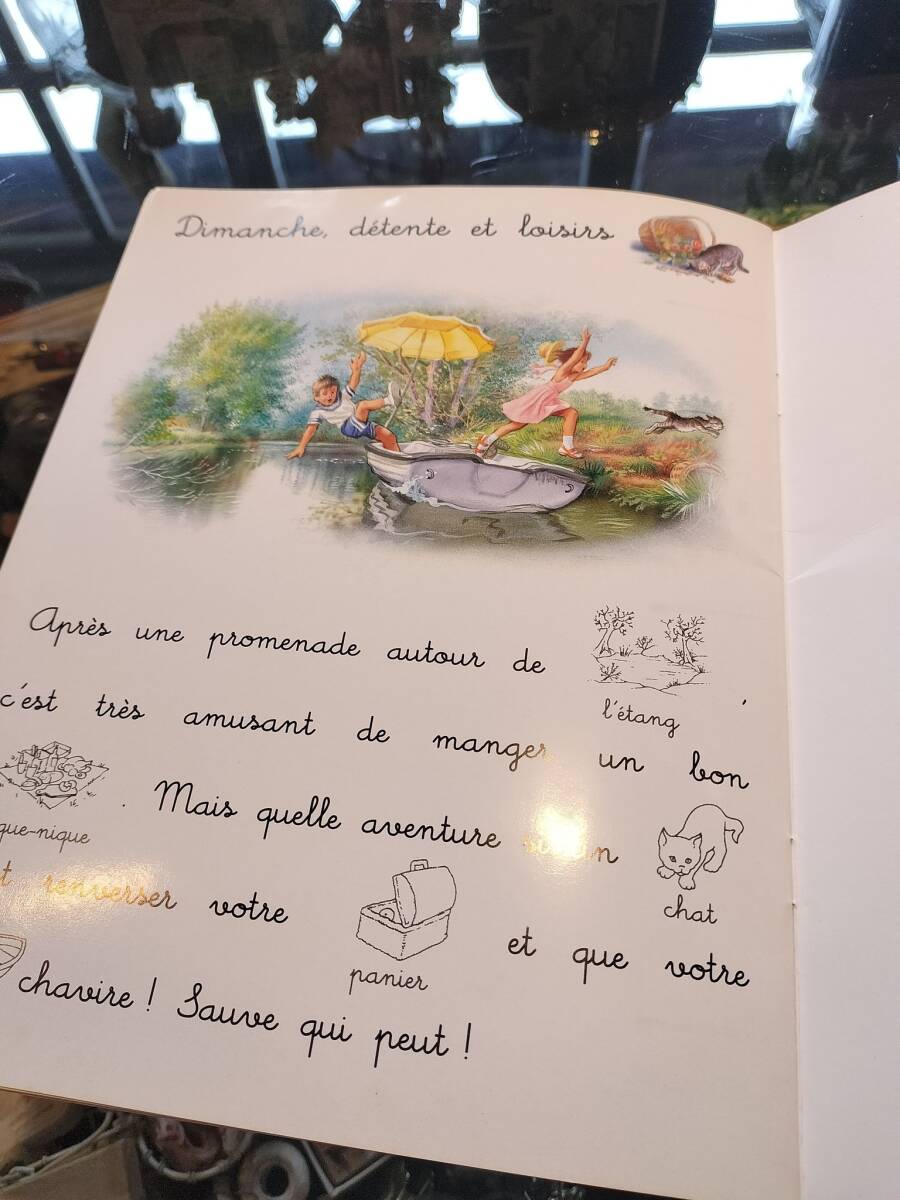 Dimanche, détente et loisirs
Après une promenade autour de
l'étang ,
c'est très amusant de manger un bon
que-nique . Mais quelle aventure
chat
t renverser votre
panier
et que votre
chavire ! Sauve qui peut !